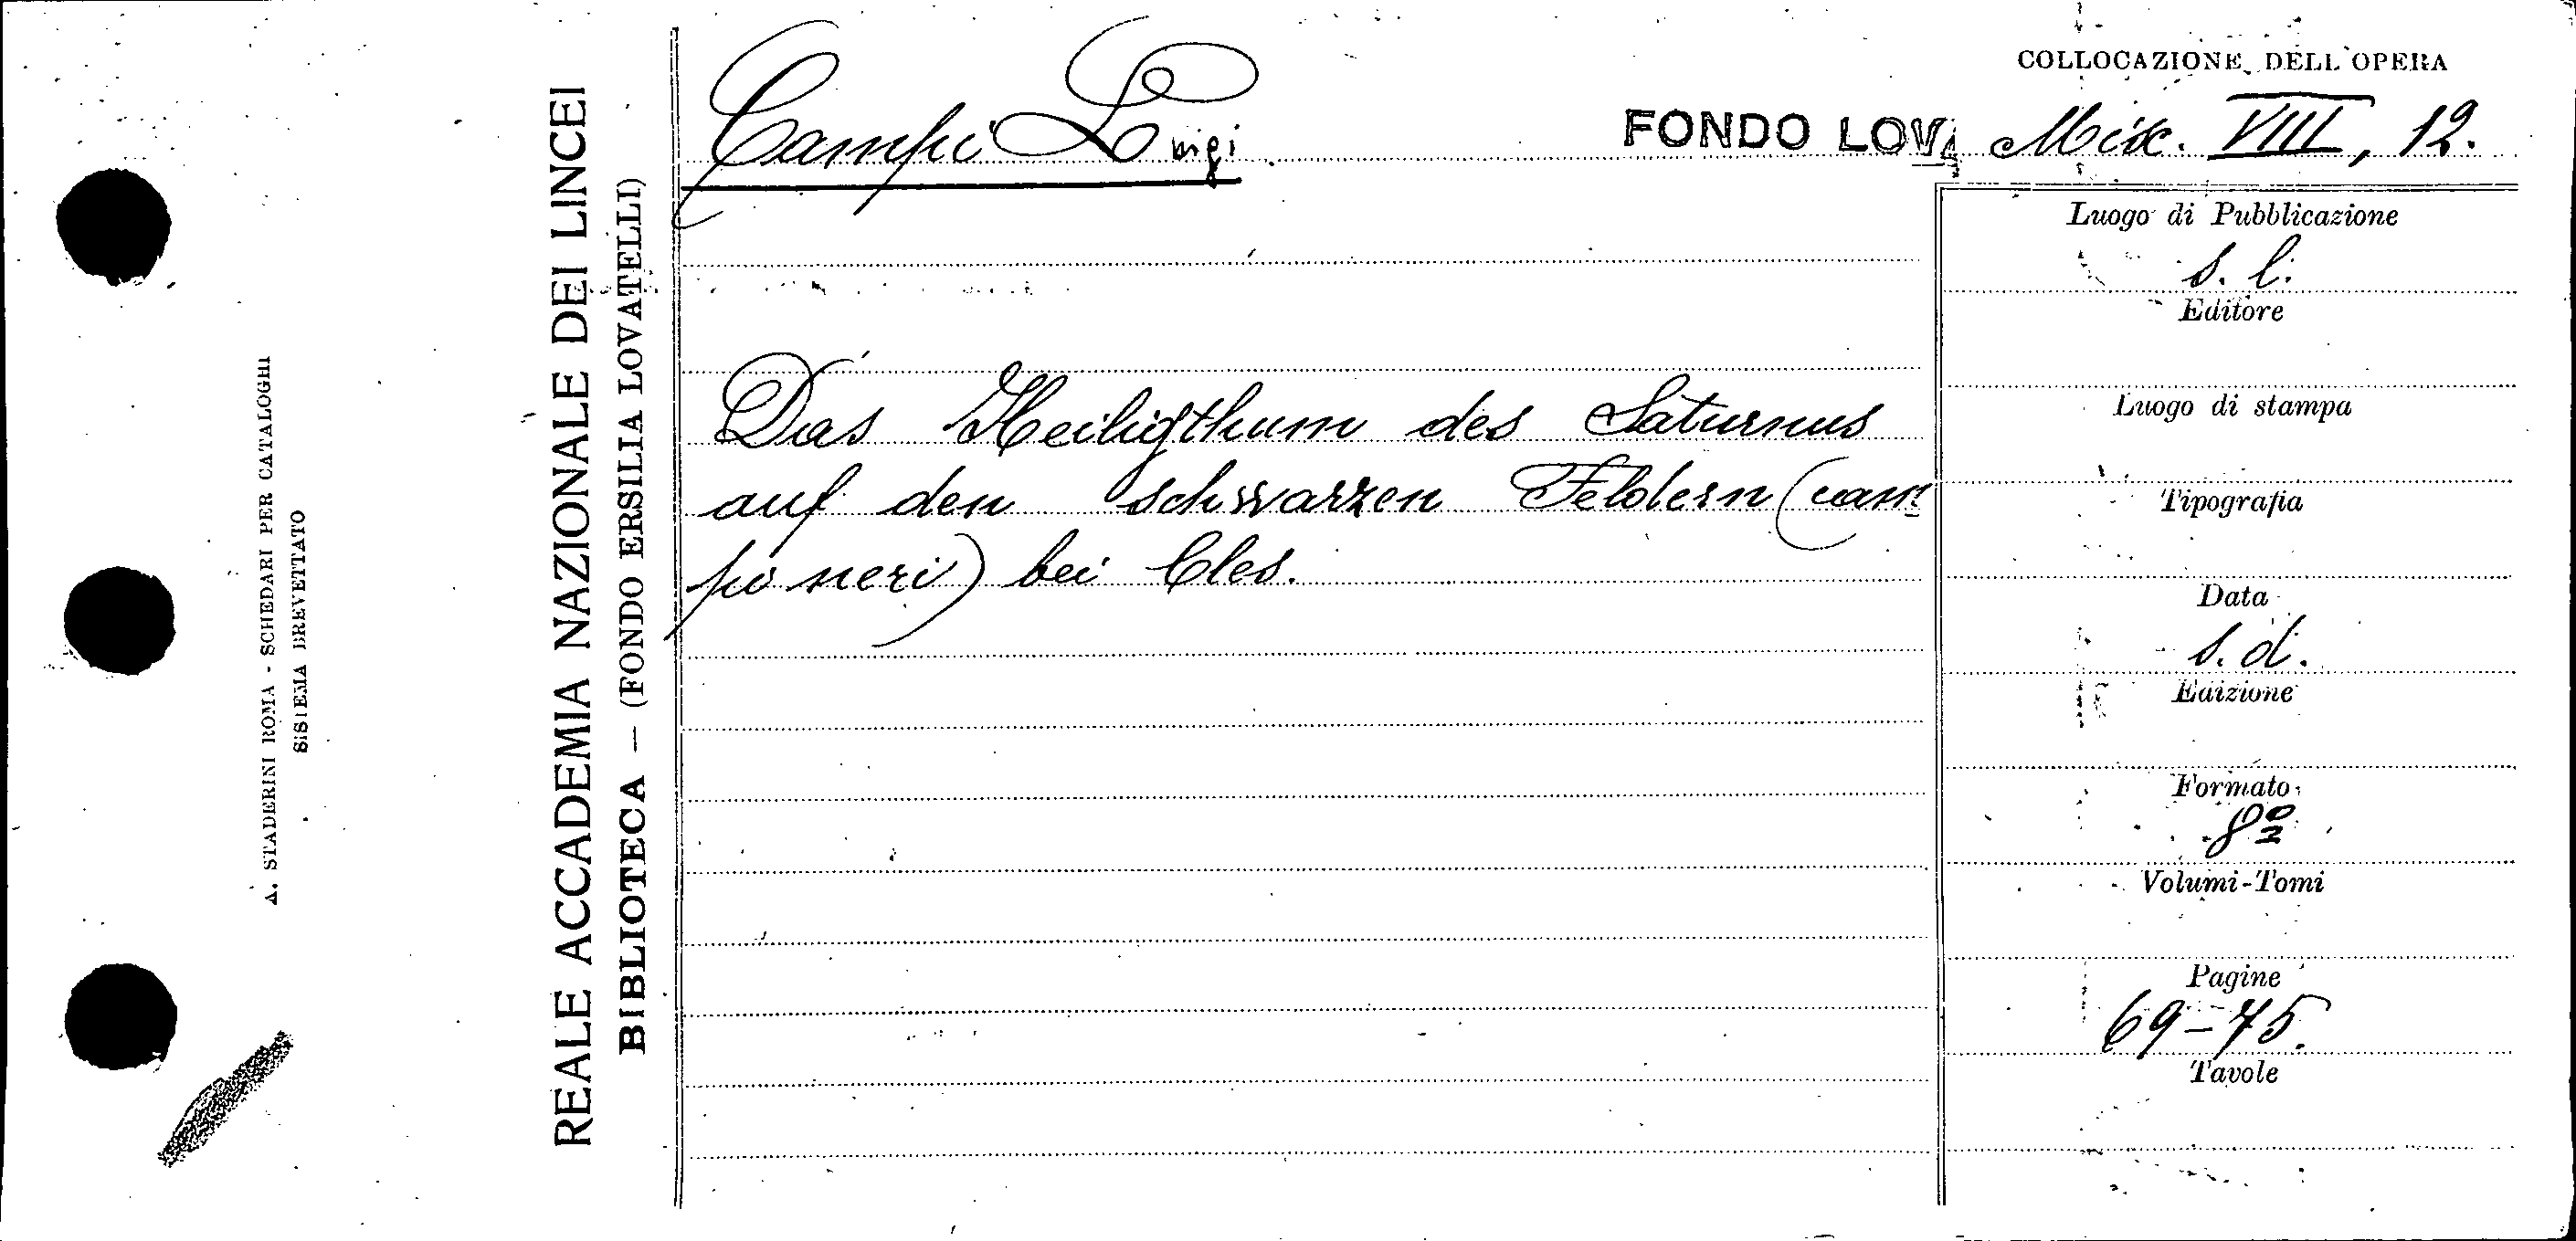 A. STADERINI ROMA - SCHEDARI PER CATALOGHI
SISTEMA BREVETTATO
REALE ACCADEMIA NAZIONALE DEI LINCEI
BIBLIOTECA — (FONDO ERSILIA LOVATELLI)
Campi Luigi
FONDO LOVA
COLLOCAZIONE DELL'OPERA
Misc. VIII, 12.
Das Heiligthum des Saturnus
auf den schwarzen Feldern (cam-
pi neri) bei Cles.
Luogo di Pubblicazione
s. l.
Editore
Luogo di stampa
Tipografia
Data
s. d.
Edizione
Formato
8º
Volumi-Tomi
Pagine
69-75.
Tavole